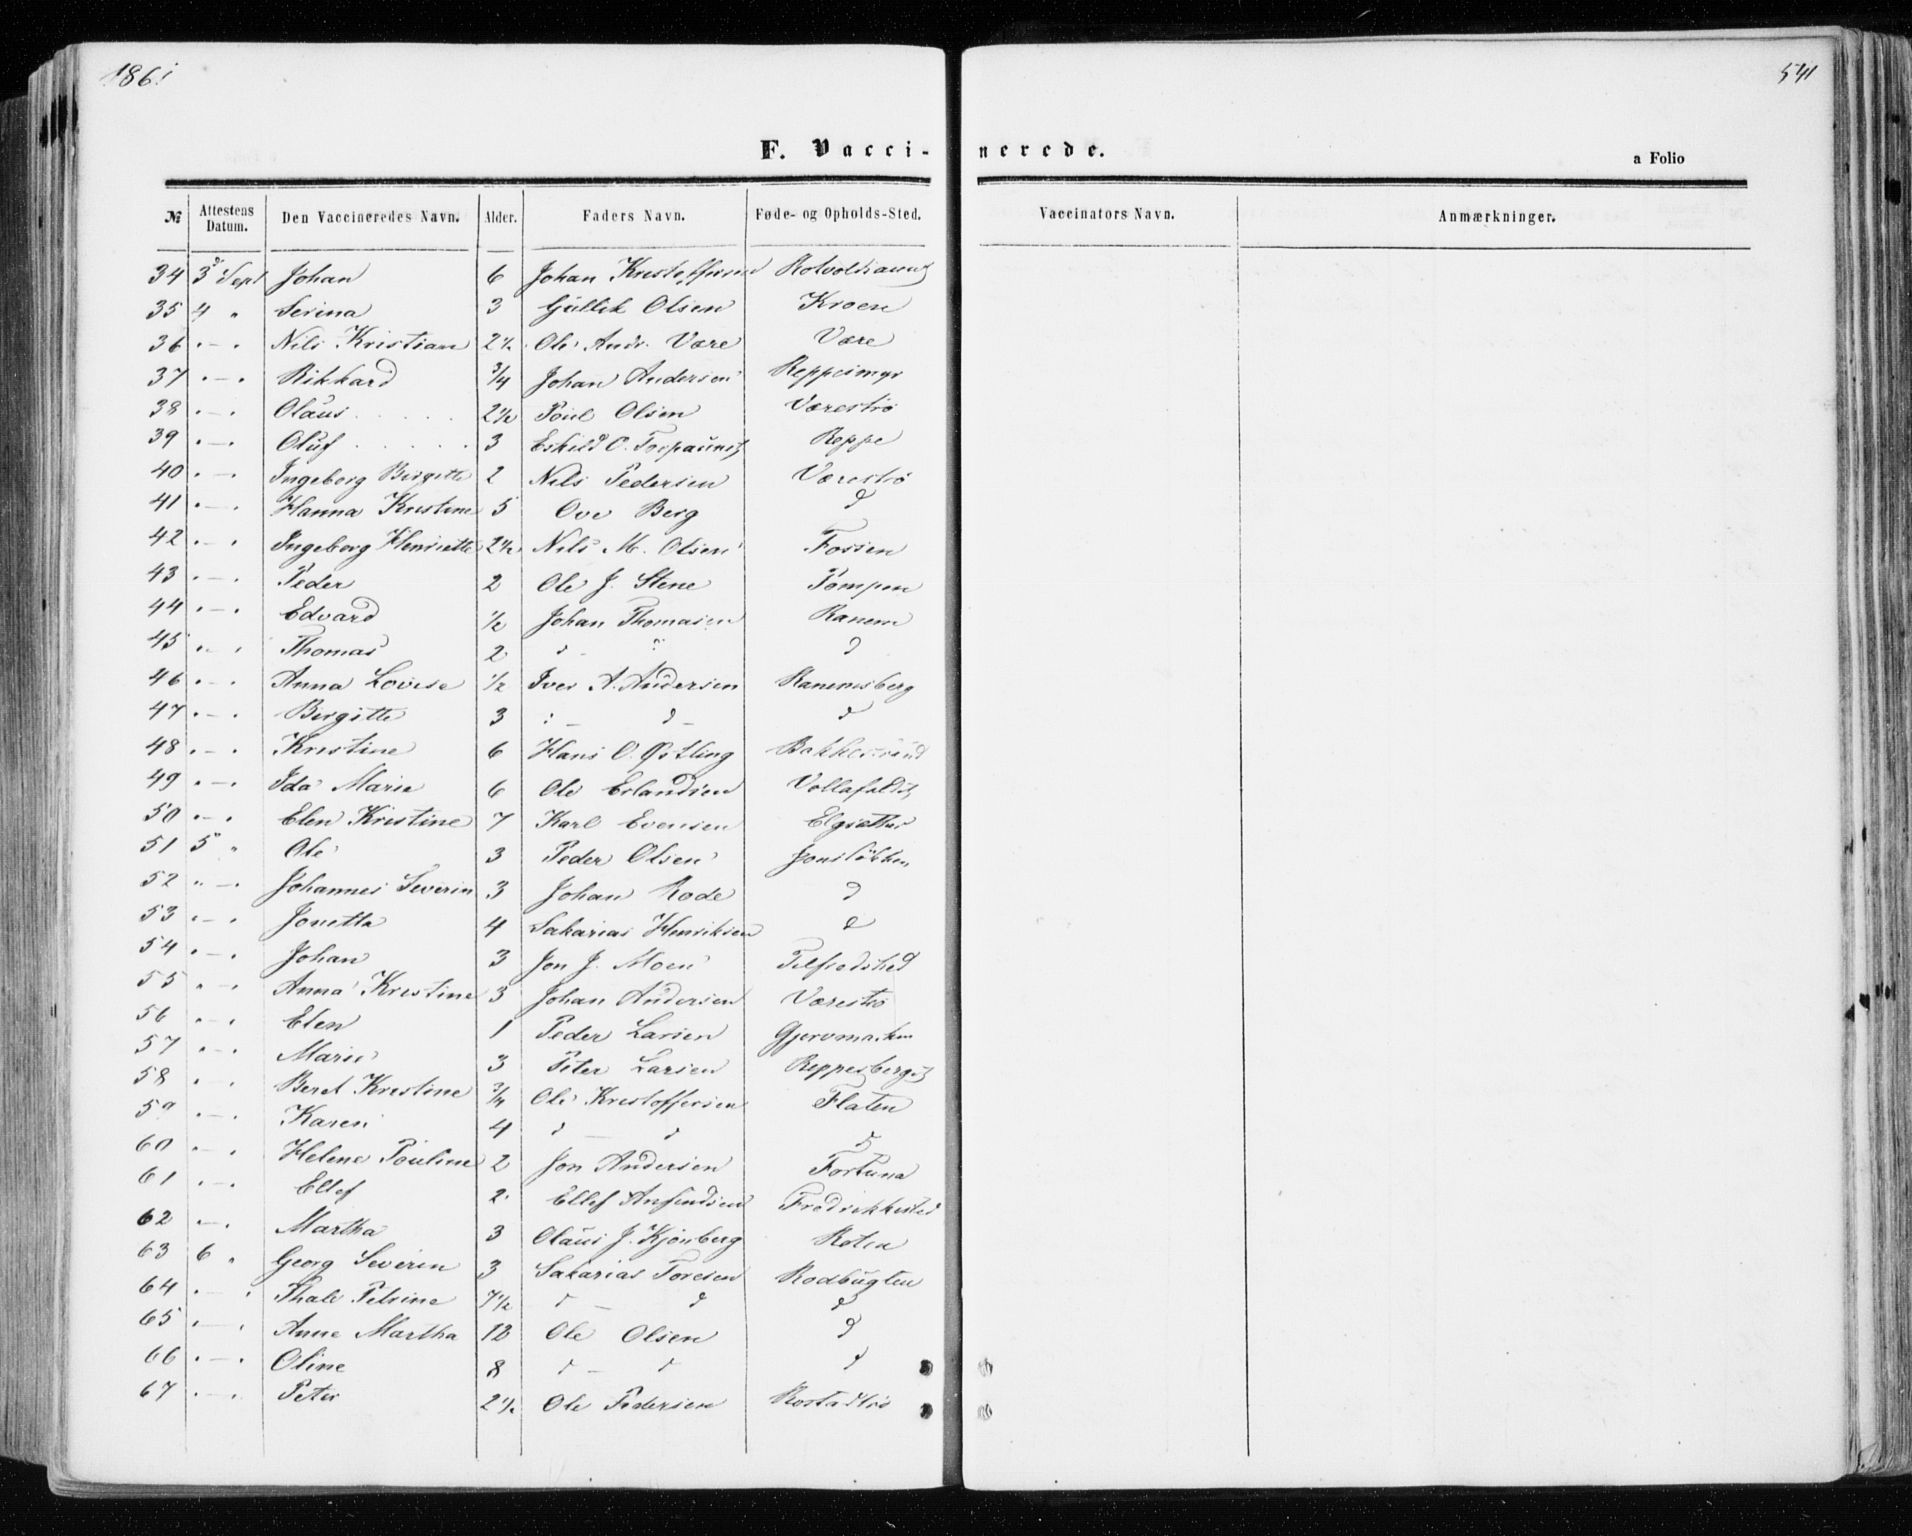 1861
541
F. Vaccinerede.
a Folio
№ Attestens Datum. Den Vaccineredes Navn. Alder. Faders Navn. Føde- og Opholds-Sted. Vaccinators Navn. Anmærkninger.
34 3d Sept Johan 6 Johan Kristoffersen
35 4 " Serina 3 Gullik Olsen Kroen
36 " — " Nils Kristian 2½ Ole Andr. Være Være
37 " — " Rikkard ¾ Johan Andersen Reppesmyr
38 " — " Olaus 2½ Poul Olsen Værestrø
39 " — " Oluf 3 Eskild O. Reppe
40 " — " Ingeborg Birgitte 2 Nils Pedersen Værestrø
41 " — " Hanna Kristine 5 Ove Berg d
42 " — " Ingeborg Henriette 2½ Nils M. Olsen Fossen
43 " — " Peder 2 Ole J. Stene Pompen
44 " — " Edvard ½ Johan Thomasen Ranem
45 " " Thomas 2 d " d
46 " — " Anna Lovise ½ Iver A. Andersen Ranemsberg
47 " — " Birgitte 3 " — d — d
48 " — " Kristine 6 Hans O. Østling Bakkestrand
49 " — " Ida Marie 6 Ole Erlandsen
50 " — " Elen Kristine 7 Karl Evensen Elgsætter
51 5 " Ole 3 Peder Olsen
52 " — " Johannes Severin 3 Johan Rode d
53 " — " Jonetta 4 Sakarias Henriksen d
54 " — " Johan 3 Jon J. Moen Tilfredshed
55 " — " Anna Kristine 3 Johan Andersen Værestrø
56 " — " Elen 1 Peder Larsen
57 " — " Marie 3 Peter Larsen
58 " — " Beret Kristine ¾ Ole Kristoffersen Flaten
59 " — " Karen 4 d — d d
60 " — " Helene Pouline 2 Jon Andersen Fortuna
61 " — " Ellef 2 Ellef Anfindsen Fredrikkested
62 " — " Martha 3 Olaus J. Kjønberg Roten
63 6 " Georg Severin 3 Sakarias Toresen Rodbugten
64 " — " Thale Petrine 7½ d — d d
65 " — " Anne Martha 12 Ole Olsen d
66 " — " Oline 8 d — d d
67 " — " Peter 2½ Ole Pedersen Rostadtrø